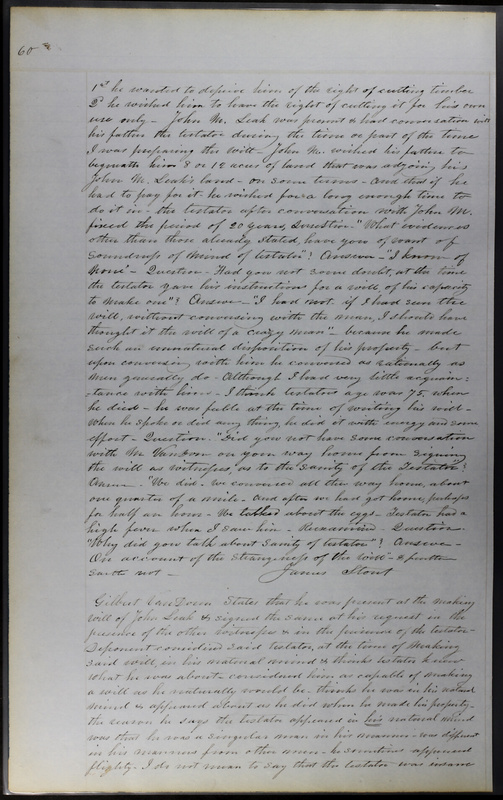 60
1st he wanted to deprive him of the right of cutting timber
2d he wished him to have the right of cutting it for his own
use only - John M. Leak was present & had conversation with
his father the testator during the time or part of the time
I was preparing the will - John M. wished his father to
bequeath him 8 or 12 acres of land that was adjoing his
John M. Leak's land - on some terms - and that if he
had to pay for it he wished for a long enough time to
do it in - the testator after conversation with John M.
fixed the period of 20 years, Question "What evidences
other than those already stated, have you of want of
soundness of mind of testator"? Answer - "I know of
None" - Question - Had you not some doubt, at the time
the testator gave his instructions for a will of his capacity
to make one"? Answer - "I had not. if I had seen the
will, without conversing with the man, I should have
thought it the will of a crazy man" - because he made
such an unnatural disposition of his property - but
upon conversing with him he conversed as rationally as
men generally do - Although I had very little acquain:
tance with him - I think testators age was 75, when
he died - he was feeble at the time of writing his will -
When he spoke or did any thing he did it with energy and some
effort - Question. "Did you not have some conversation
with Mr VanDoren on your way home from signing
the will as witness, as to the sanity of the Testator"?
Answer - "We did - we conversed all the way home, about
one quarter of a mile - and after we had got home, perhaps
for half an hour - We talked about the eggs - Testator had a
high fever when I saw him - Reexamined - Question -
"Why did you talk about sanity of testator"? Answer -
On account of the strangeness of the will - & further
saith not -
James Stout
Gilbert VanDoren States that he was present at the making
will of John Leak & signed the same at his request in the
presence of the other witness & in the presence of the testator
Deponent considered said testator, at the time of making
said will, in his natural mind & thinks testator knew
what he was about - considered him as capable of making
a will as he naturally would be - thinks he was in his natural
mind & appeared about as he did when he made his property -
the reason he says the testator appeared in his natural mind
was that he was a singular man in his manner - was different
in his manners from other men - he sometimes appeared
flighty - I do not mean to say that the testator was insane